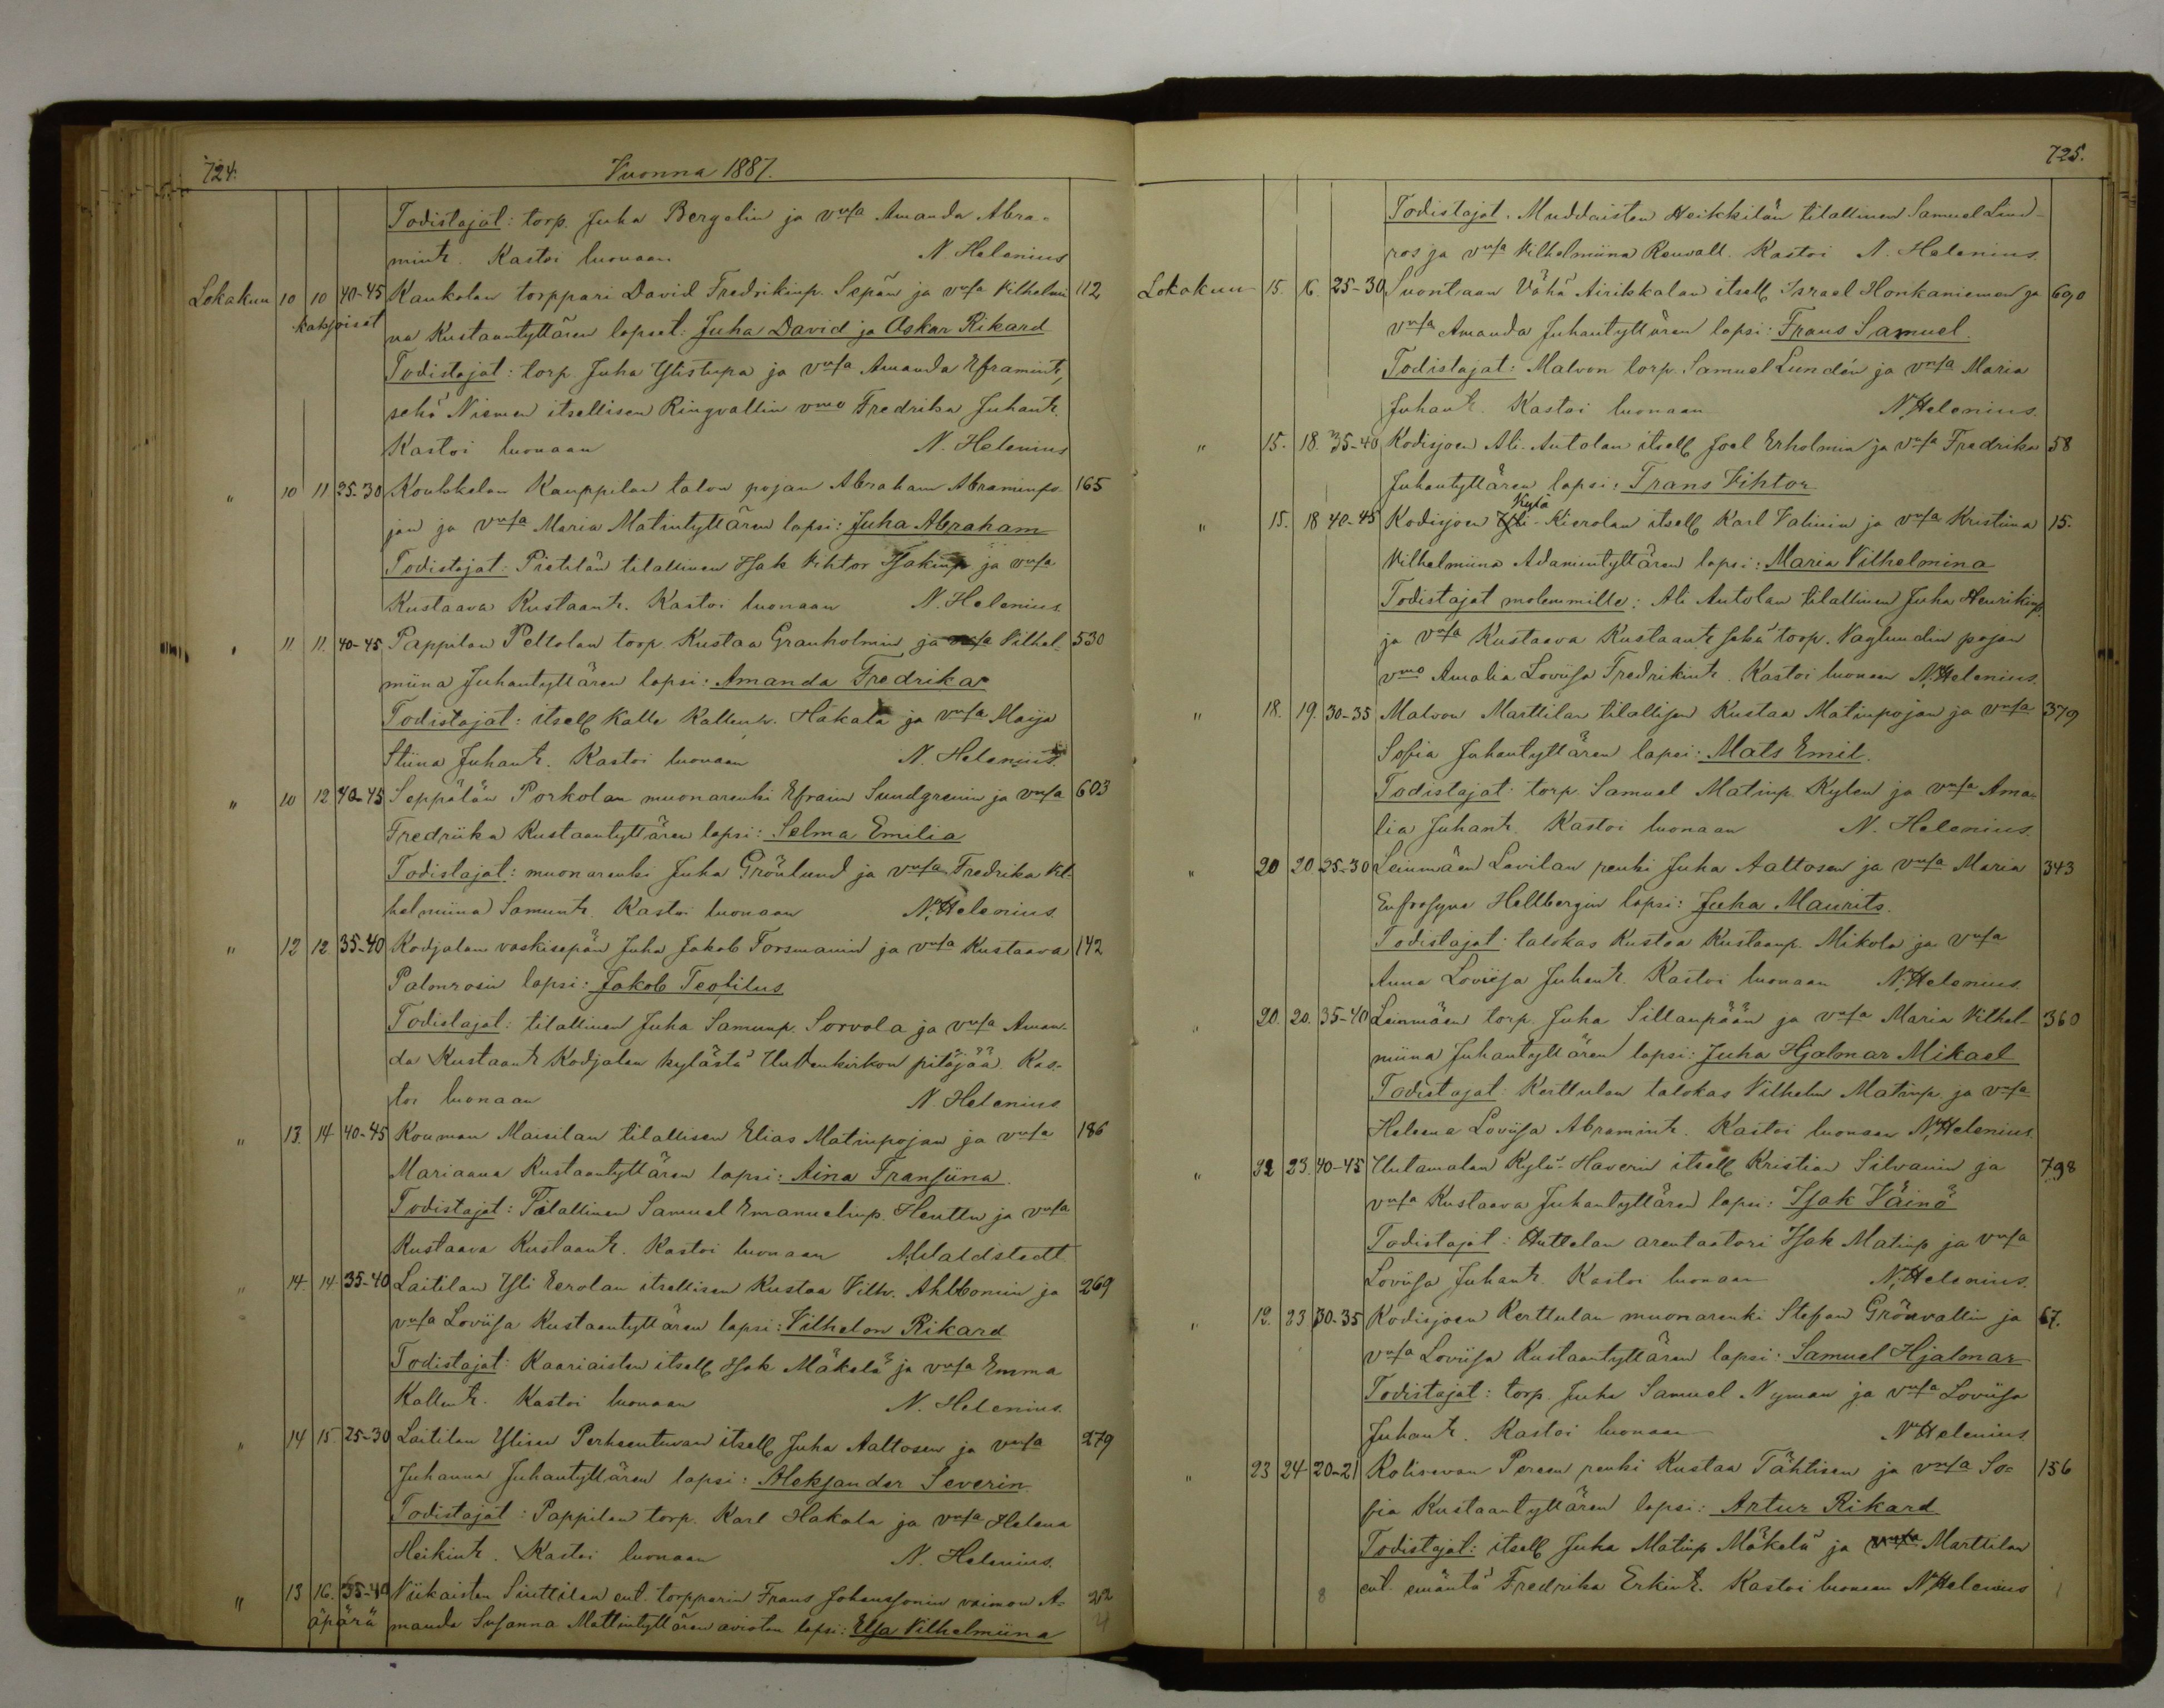 724.
Vuonna 1887.
Todistajat: torp. Juha Bergelin ja vnsa Amanda Abra-
mintr. Kastoi luonaan N. Helenius
Lokakuu 10 10 40-45 Kaukolan torppari David Fredrikinp. Sepän ja vnsa Vilhelmi 112
kaksoiset na Kustaantyttären lapset: Juha David ja Oskar Rikard
Todistajat: torp. Juha Ylistupa ja vnsa Amanda Eframintr,
sekä Niemen itsellisen Ringvallin vmo Fredrika Juhantr.
Kastoi luonaan N. Helenius
" 10 11 25-30 Koukkelan Kauppilan talon pojan Abraham Abraminpo- 165
jan ja vnsa Maria Matintyttären lapsi: Juha Abraham
Todistajat: Pietilän tilallinen Isak Vihtor Isakinp ja vnsa
Kustaava Kustaantr. Kastoi luonaan N. Helenius.
" 11 11. 40-45 Pappilan Peltolan torp. Kustaa Granholmin ja vnsa Vilhel- 530
miina Juhantyttären lapsi: Amanda Fredrika
Todistajat: itsell Kalle Kallentr. Hakala ja vnsa Maija
Stiina Juhantr. Kastoi luonaan N. Helenius.
" 10 12 40-45 Seppälän Porkolan muonarenki Efraim Sundgrenin ja vnsa 603
Fredriika Kustaantyttären lapsi: Selma Emilia
Todistajat: muonarenki Juha Grönlund ja vnsa Fredrika Vil-
helmiina Samuntr. Kastoi luonaan N. Helenius.
" 12 12. 35-40 Kodjalan vaskisepän Juha Jakob Forsmanin ja vnsa Kustaava 142
Palmrosin lapsi: Jakob Teofilus
Todistajat: tilallinen Juha Samunp. Sorvola ja vnsa Aman-
da Kustaantr Kodjalan kylästä Uudenkirkon pitäjää. Kas-
toi luonaan N. Helenius
" 13. 14 40-45 Kouman Maisilan tilallisen Elias Matinpojan ja vnsa 186
Mariaana Kustaantyttären lapsi: Aina Fransiina.
Todistajat: Tilallinen Samuel Emanuelinp. Heuttu ja vnsa
Kustaava Kustaantr. Kastoi luonaan A. Waldstedt
" 14. 14. 35-40 Laitilan Yli Eerolan itsellisen Kustaa Vilh. Ahlbomin ja 269
vnsa Loviisa Kustaantyttären lapsi: Vilhelm Rikard
Todistajat: Kaariaisten itsell Isak Mäkelä ja vnsa Emma
Kallentr. Kastoi luonaan N. Helenius.
" 14 15 25-30 Laitilan Ylisen Perheentuvan itsell Juha Aaltosen ja vnsa 279
Juhanna Juhantyttären lapsi: Aleksander Severin.
Todistajat: Pappilan torp. Karl Hakala ja vnsa Helena
Heikintr. Kastoi luonaan N. Helenius.
" 13 16. 35-40 Viikaisten Siuttilan ent. torpparin Frans Johanssonin vaimon A- 212
äpärä manda Susanna Mattintyttären avioton lapsi: Elsa Vilhelmiina
725.
Todistajat. Muddaisten Heikkilän tilallinen Samuel Lind-
ros ja vnsa Vilhelmiina Renvall. Kastoi N. Helenius.
Lokakuu 15. 16. 25-30 Suontaan Vähä Airikkalan itsell Israel Honkaniemen ja 690
vnsa Amanda Juhantyttären lapsi: Frans Samuel.
Todistajat: Malvon torp. Samuel Lundén ja vnsa Maria
Juhantr. Kastoi luonaan N. Helenius.
" 15. 18. 35-40 Kodisjoen Ali-Autolan itsell Joel Erholmin ja vnsa Fredrika 58
Juhantyttären lapsi: Frans Vihtor
" 15. 18 40-45 Kodisjoen Yli Kylä-Kierolan itsell Karl Valinin ja vnsa Kristiina 15.
Vilhelmiina Adamintyttären lapsi: Maria Vilhelmina
Todistajat molemmille: Ali Autolan tilallinen Juha Henrikinp.
ja vnsa Kustaava Kustaantr sekä torp. Vaglundin pojan
vmo Amalia Loviisa Fredrikintr. Kastoi luonaan N. Helenius.
" 18. 19. 30-35 Malvon Marttilan tilallisen Kustaa Matinpojan ja vnsa 379
Sofia Juhantyttären lapsi: Mats Emil.
Todistajat: torp. Samuel Matinp. Kylen ja vnsa Ama-
lia Juhantr. Kastoi luonaan N. Helenius.
" 20 20. 25-30 Leinmäen Lavilan renki Juha Aaltosen ja vnsa Maria 343
Eufrosyne Hellbergin lapsi: Juha Maurits.
Todistajat: talokas Kustaa Kustaanp. Mikola ja vnsa
Anna Loviisa Juhantr. Kastoi luonaan N. Helenius.
" 20. 20. 35-40 Leinmäen torp. Juha Sillanpään ja vnsa Maria Vilhel- 360
miina Juhantyttären lapsi: Juha Hjalmar Mikael
Todistajat Kerttulan talokas Vilhelm Matinp. ja vnsa
Heleena Loviisa Abramintr. Kastoi luonaan N. Helenius.
" 22 23. 40-45 Untamalan Kylä-Haverin itsell Kristian Silvanin ja 798
vnsa Kustaava Juhantyttären lapsi: Isak Väinö
Todistajat: Huttalan arentaatori Isak Matinp ja vnsa
Loviisa Juhantr. Kastoi luonaan N. Helenius.
" 19. 23 30-35 Kodisjoen Kerttulan muonarenki Stefan Grönvallin ja 67.
vnsa Loviisa Kustaantyttären lapsi: Samuel Hjalmar
Todistajat: torp. Juha Samuel Nyman ja vnsa Loviisa
Juhantr. Kastoi luonaan N. Helenius.
" 23 24 20-21 Kolisevan Pereen renki Kustaa Tähtisen ja vnsa So- 156
fia Kustaantyttären lapsi: Artur Rikard
Todistajat: itsell Juha Matinp Mäkelä ja vnsa Marttilan
ent. emäntä Fredrika Erkintr. Kastoi luonaan N. Helenius
8